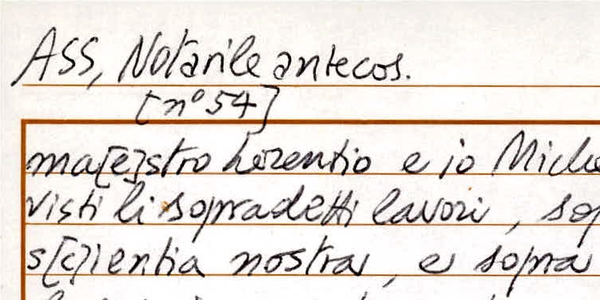 ASS, Notarile antecos.
[n° 54]
ma[e]stro Lorentio e io Miche
visti li sopradetti lavori, sop
s[c]ientia nostra, e sopra